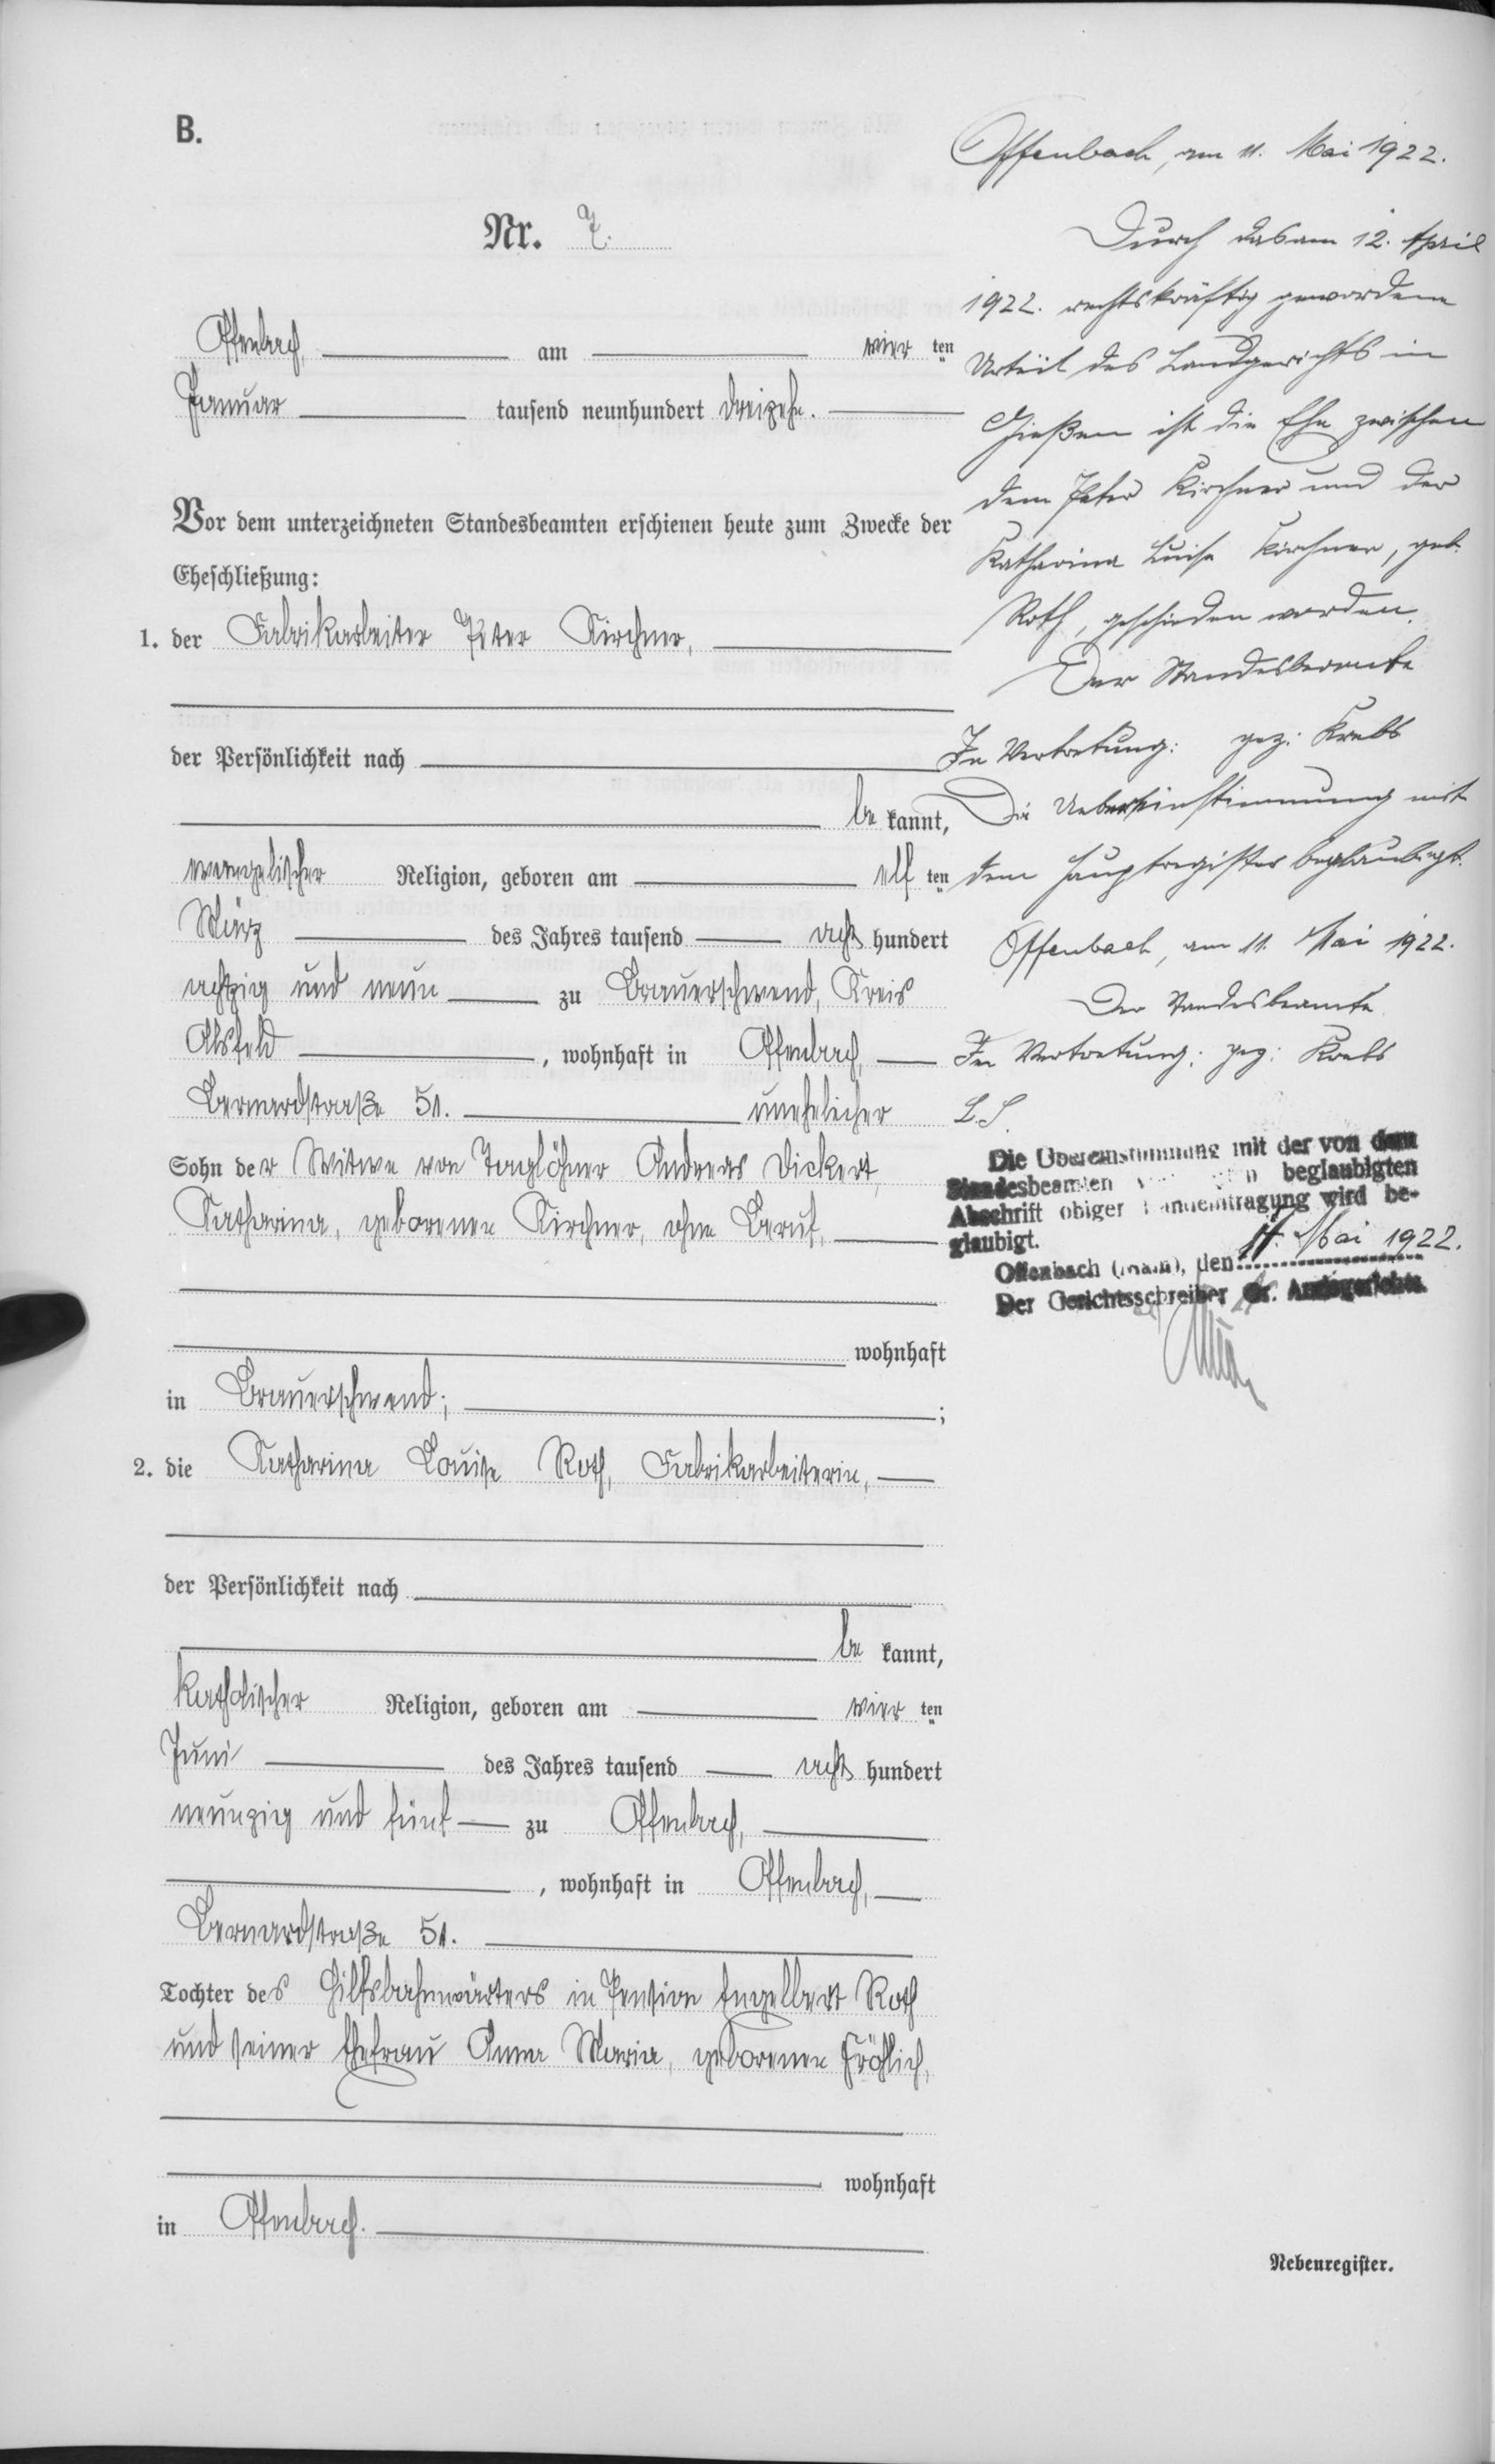 B.
Nr. 7.
Offenbach am vier ten
Januar tausend neunhundert dreizehn.
Vor dem unterzeichneten Standesbeamten erschienen heute zum Zwecke der
Eheschließung:
1. der Fabrikarbeiter Peter Kirchner,
der Persönlichkeit nach
be kannt,
evangelischer Religion, geboren am elf ten
März des Jahres tausend acht hundert
achtzig und neun zu Brauerschwend, Kreis
Alsfeld, wohnhaft in Offenbach,
Bernardstraße 51. unehelicher
Sohn der Witwe von Taglöhner Andreas Dickert,
Katharina, geborenen Kirchner, ohne Beruf,
wohnhaft
in Brauerschwend; ;
2. die Katharina Louise Roth, Fabrikarbeiterin,
der Persönlichkeit nach
be kannt,
katholischer Religion, geboren am vier ten
Juni des Jahres tausend acht hundert
neunzig und fünf zu Offenbach,
, wohnhaft in Offenbach,
Bernardstraße 51.
Tochter des Hilfsbahnwärters in Pension Engelbert Roth
und seiner Ehefrau Anna Maria, geborenen Fröhlich,
wohnhaft
in Offenbach.
Offenbach, am 11. Mai 1922.
Durch das am 12. April
1922. rechtskräftig gewordene
Urteil des Landgerichts in
Gießen ist die Ehe zwischen
dem Peter Kirchner und der
Katharina Luise Kirchner, geb.
Roth, geschieden worden.
Der Standesbeamte
In Vertretung: gez: Krebs
Die Uebereinstimmung mit
dem Hauptregister beglaubigt.
Offenbach, am 11. Mai 1922.
Der Standesbeamte
In Vertretung: gez: Krebs
L.S.
Die Übereinstimmung mit der von dem
Standesbeamten beglaubigten
Abschrift obiger Randeintragung wird be-
glaubigt.
Offenbach (Main), den 11. Mai 1922.
Der Gerichtsschreiber Gr. Amtsgerichts.
Nebenregister.